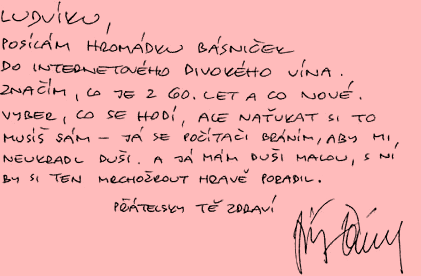 LUDVÍKU,
POSÍLÁM HROMÁDKU BÁSNIČEK
DO INTERNETOVÉHO DIVOKÉHO VÍNA.
ZNAČÍM, CO JE Z 60. LET A CO NOVÉ.
VYBER, CO SE HODÍ, ALE NAŤUKAT SI TO
MUSÍŠ SÁM – JÁ SE POČÍTAČI BRÁNÍM, ABY MI
NEUKRADL DUŠI. A JÁ MÁM DUŠI MALOU, S NÍ
BY SI TEN MRCHOŽROUT HRAVĚ PORADIL.
PŘÁTELSKY TĚ ZDRAVÍ